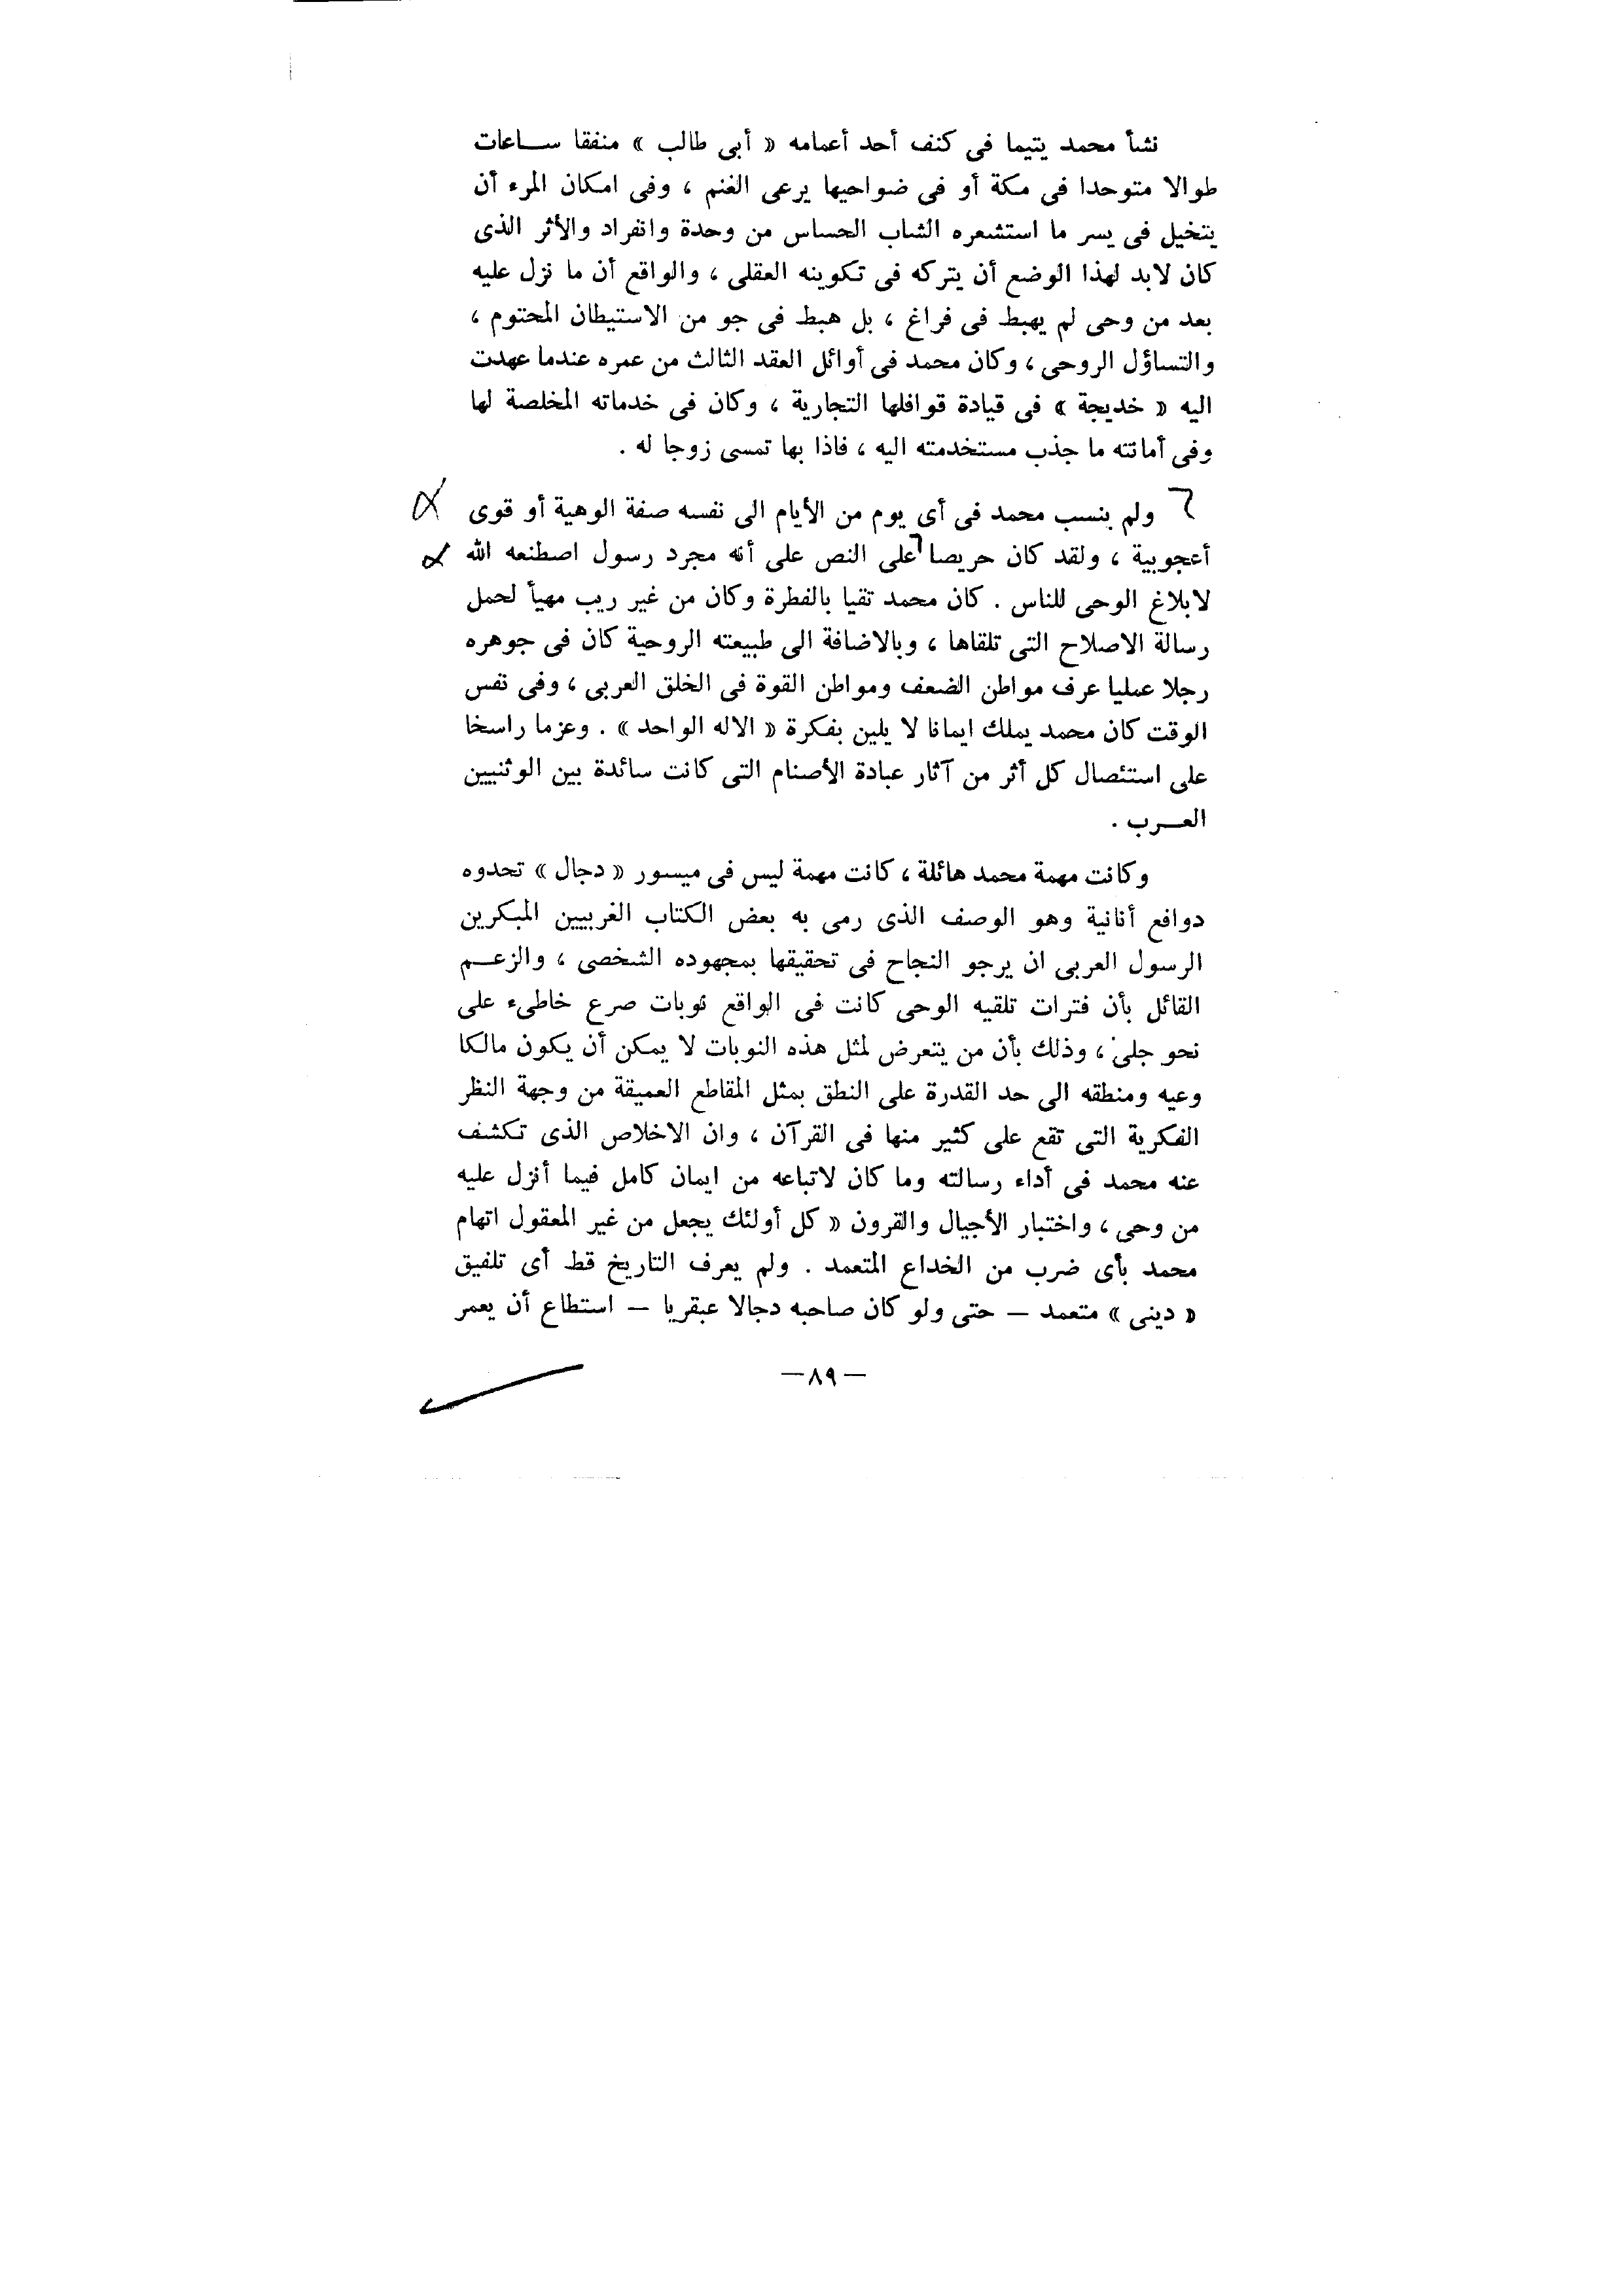 نشأ محمد يتيما فى كنف أحد أعمامه « أبى طالب » منفقا ســاعات
طوالا متوحدا فى مكة أو فى ضواحيها يرعى الغنم ، وفى امكان المرء أن
يتخيل فى يسر ما استشعره الشاب الحساس من وحدة وانفراد والأثر الذى
كان لابد لهذا الوضع أن يتركه فى تكوينه العقلى ، والواقع أن ما نزل عليه
بعد من وحى لم يهبط فى فراغ ، بل هبط فى جو من الاستيطان المحتوم ،
والتساؤل الروحى ، وكان محمد فى أوائل العقد الثالث من عمره عندما عهدت
اليه « خديجة » فى قيادة قوافلها التجارية ، وكان فى خدماته المخلصة لها
وفى أمانته ما جذب مستخدمته اليه ، فاذا بها تمسى زوجا له .
ولم ينسب محمد فى أى يوم من الأيام الى نفسه صفة الوهية أو قوى
أعجوبية ، ولقد كان حريصا على النص على أنه مجرد رسول اصطنعه الله
لابلاغ الوحى للناس . كان محمد تقيا بالفطرة وكان من غير ريب مهيأ لحمل
رسالة الاصلاح التى تلقاها ، وبالاضافة الى طبيعته الروحية كان فى جوهره
رجلا عمليا عرف مواطن الضعف ومواطن القوة فى الخلق العربى ، وفى نفس
الوقت كان محمد يملك ايمانا لا يلين بفكرة « الاله الواحد » . وعزما راسخا
على استئصال كل أثر من آثار عبادة الأصنام التى كانت سائدة بين الوثنيين
العــرب .
وكانت مهمة محمد هائلة ، كانت مهمة ليس فى ميسور « دجال » تحدوه
دوافع أنانية وهو الوصف الذى رمى به بعض الكتاب الغربيين المبكرين
الرسول العربى ان يرجو النجاح فى تحقيقها بمجهوده الشخصى ، والزعــم
القائل بأن فترات تلقيه الوحى كانت فى الواقع نوبات صرع خاطىء على
نحو جلى ، وذلك بأن من يتعرض لمثل هذه النوبات لا يمكن أن يكون مالكا
وعيه ومنطقه الى حد القدرة على النطق بمثل المقاطع العميقة من وجهة النظر
الفكرية التى تقع على كثير منها فى القرآن ، وان الاخلاص الذى تكشف
عنه محمد فى أداء رسالته وما كان لاتباعه من ايمان كامل فيما أنزل عليه
من وحى ، واختبار الأجيال والقرون « كل أولئك يجعل من غير المعقول اتهام
محمد بأى ضرب من الخداع المتعمد . ولم يعرف التاريخ قط أى تلفيق
« دينى » متعمد — حتى ولو كان صاحبه دجالا عبقريا — استطاع أن يعمر
—٨٩—